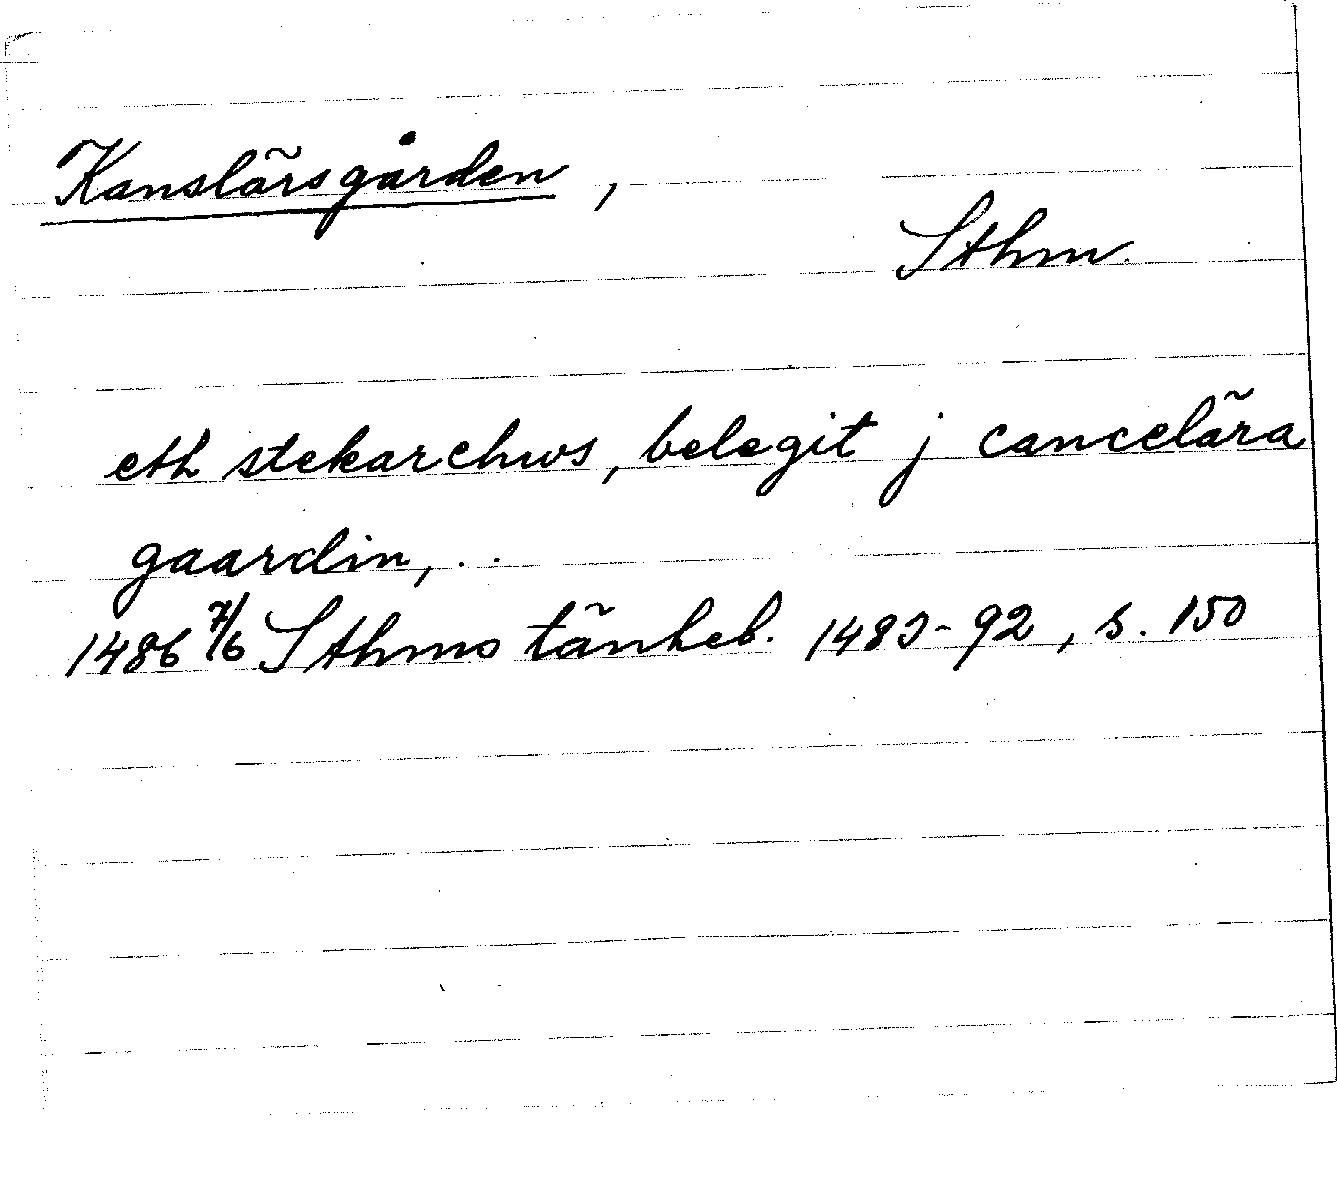 Kanslärsgården,
Sthm.
eth stekarehws, belegit j cancelära
gaardin, . .
1486 7/6 Sthms tänkeb. 1483-92, s. 150